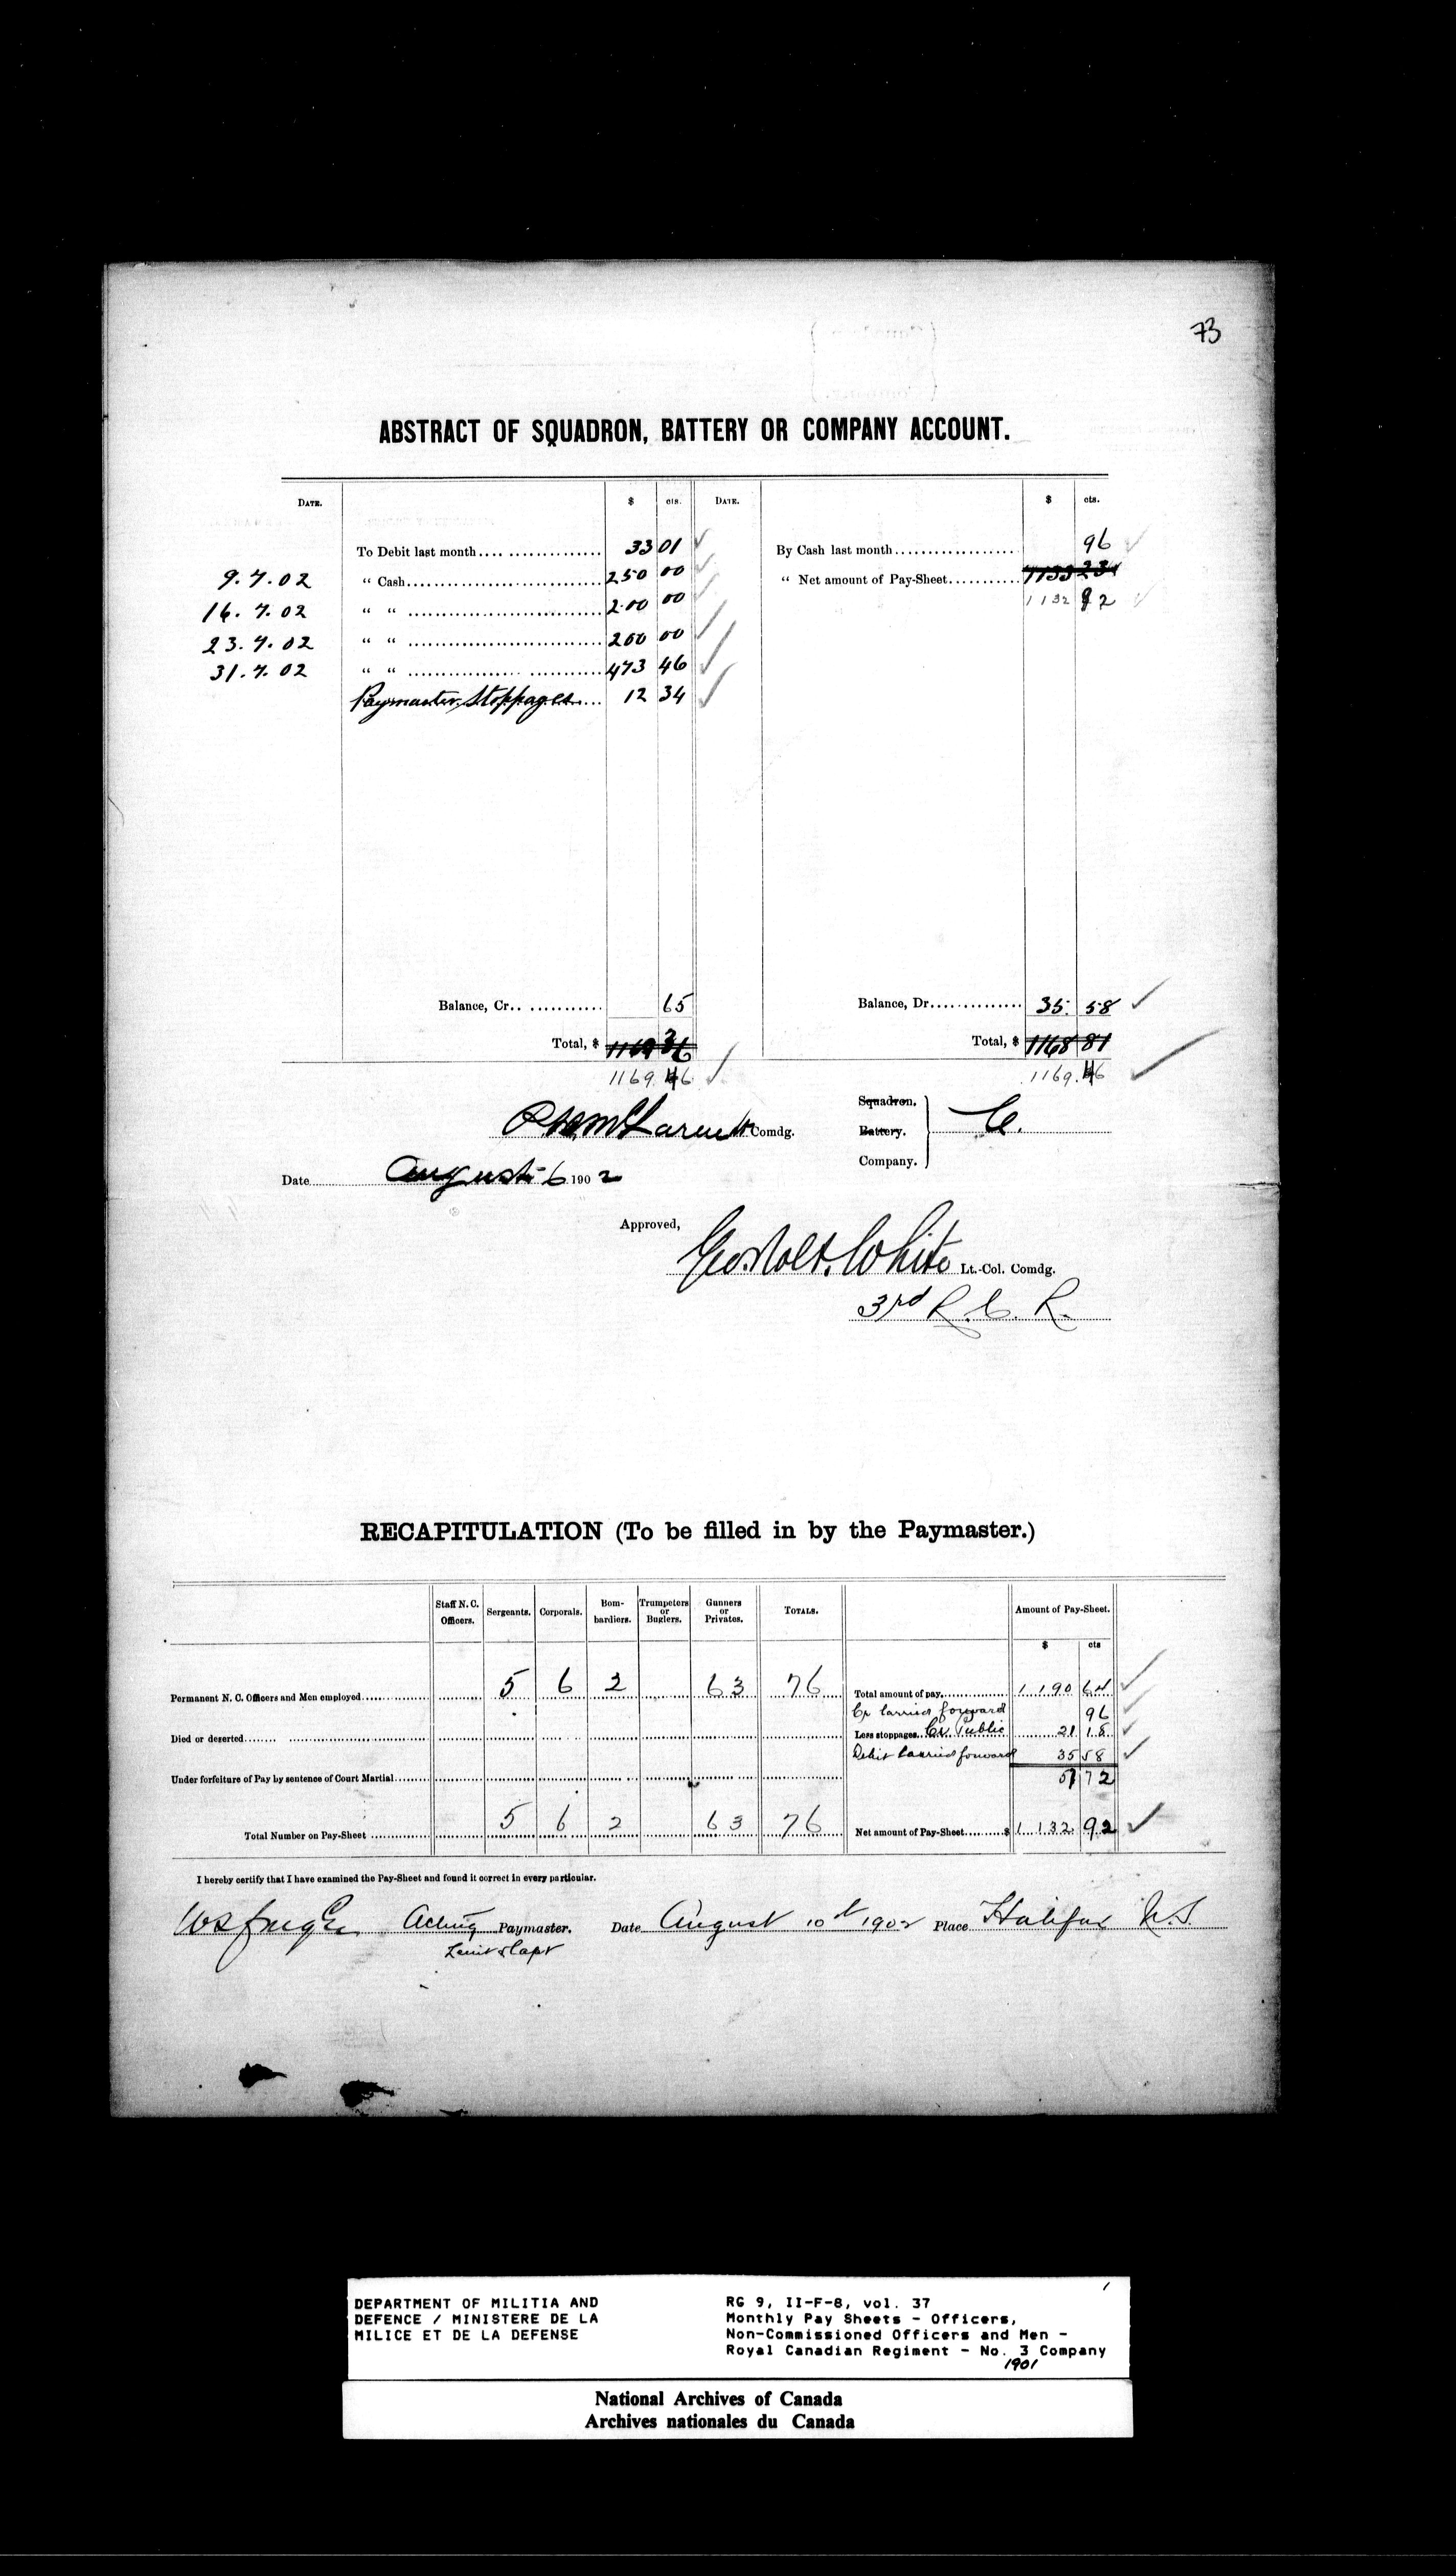 73
ABSTRACT OF SQUADRON, BATTERY OR COMPANY ACCOUNT.
DATE. $ cts. DATE. $ cts.
To Debit last month 33 01 By Cash last month 96
9.7.02 “ Cash 250 00 “ Net amount of Pay-Sheet 1133 23
16.7.02 “ “ 200 00 1132 92
23.7.02 “ “ 200 00
31.7.02 “ “ 473 46
Paymaster Stoppages 12 34
Balance, Cr. 65 Balance, Dr. 35 58
Total, $ 1169 36 Total, $ 1168 81
1169 46 1169.46
Comdg. Squadron.
Battery. C.
Company.
Date August 6 1902
Approved,
White Lt.-Col. Comdg.
3rd R. C. R.
RECAPITULATION (To be filled in by the Paymaster.)
Staff N. C. Officers. Sergeants. Corporals. Bom-bardiers. Trumpeters or Buglers. Gunners or Privates. TOTALS. Amount of Pay-Sheet.
$ cts
Permanent N. C. Officers and Men employed 5 6 2 63 76 Total amount of pay 1190 64
Cr Carried forward 96
Died or deserted Less stoppages Cr. Public 21 18
Debit Carried forward 35 58
Under forfeiture of Pay by sentence of Court Martial 57 72
Total Number on Pay-Sheet 5 6 2 63 76 Net amount of Pay-Sheet $ 1132 92
I hereby certify that I have examined the Pay-Sheet and found it correct in every particular.
Acting Paymaster. Date August 10th 1902 Place Halifax N.S.
Lieut & Capt
DEPARTMENT OF MILITIA AND
DEFENCE / MINISTERE DE LA
MILICE ET DE LA DEFENSE
RG 9, II-F-8, vol. 37
Monthly Pay Sheets - Officers,
Non-Commissioned Officers and Men -
Royal Canadian Regiment - No. 3 Company
1901
National Archives of Canada
Archives nationales du Canada